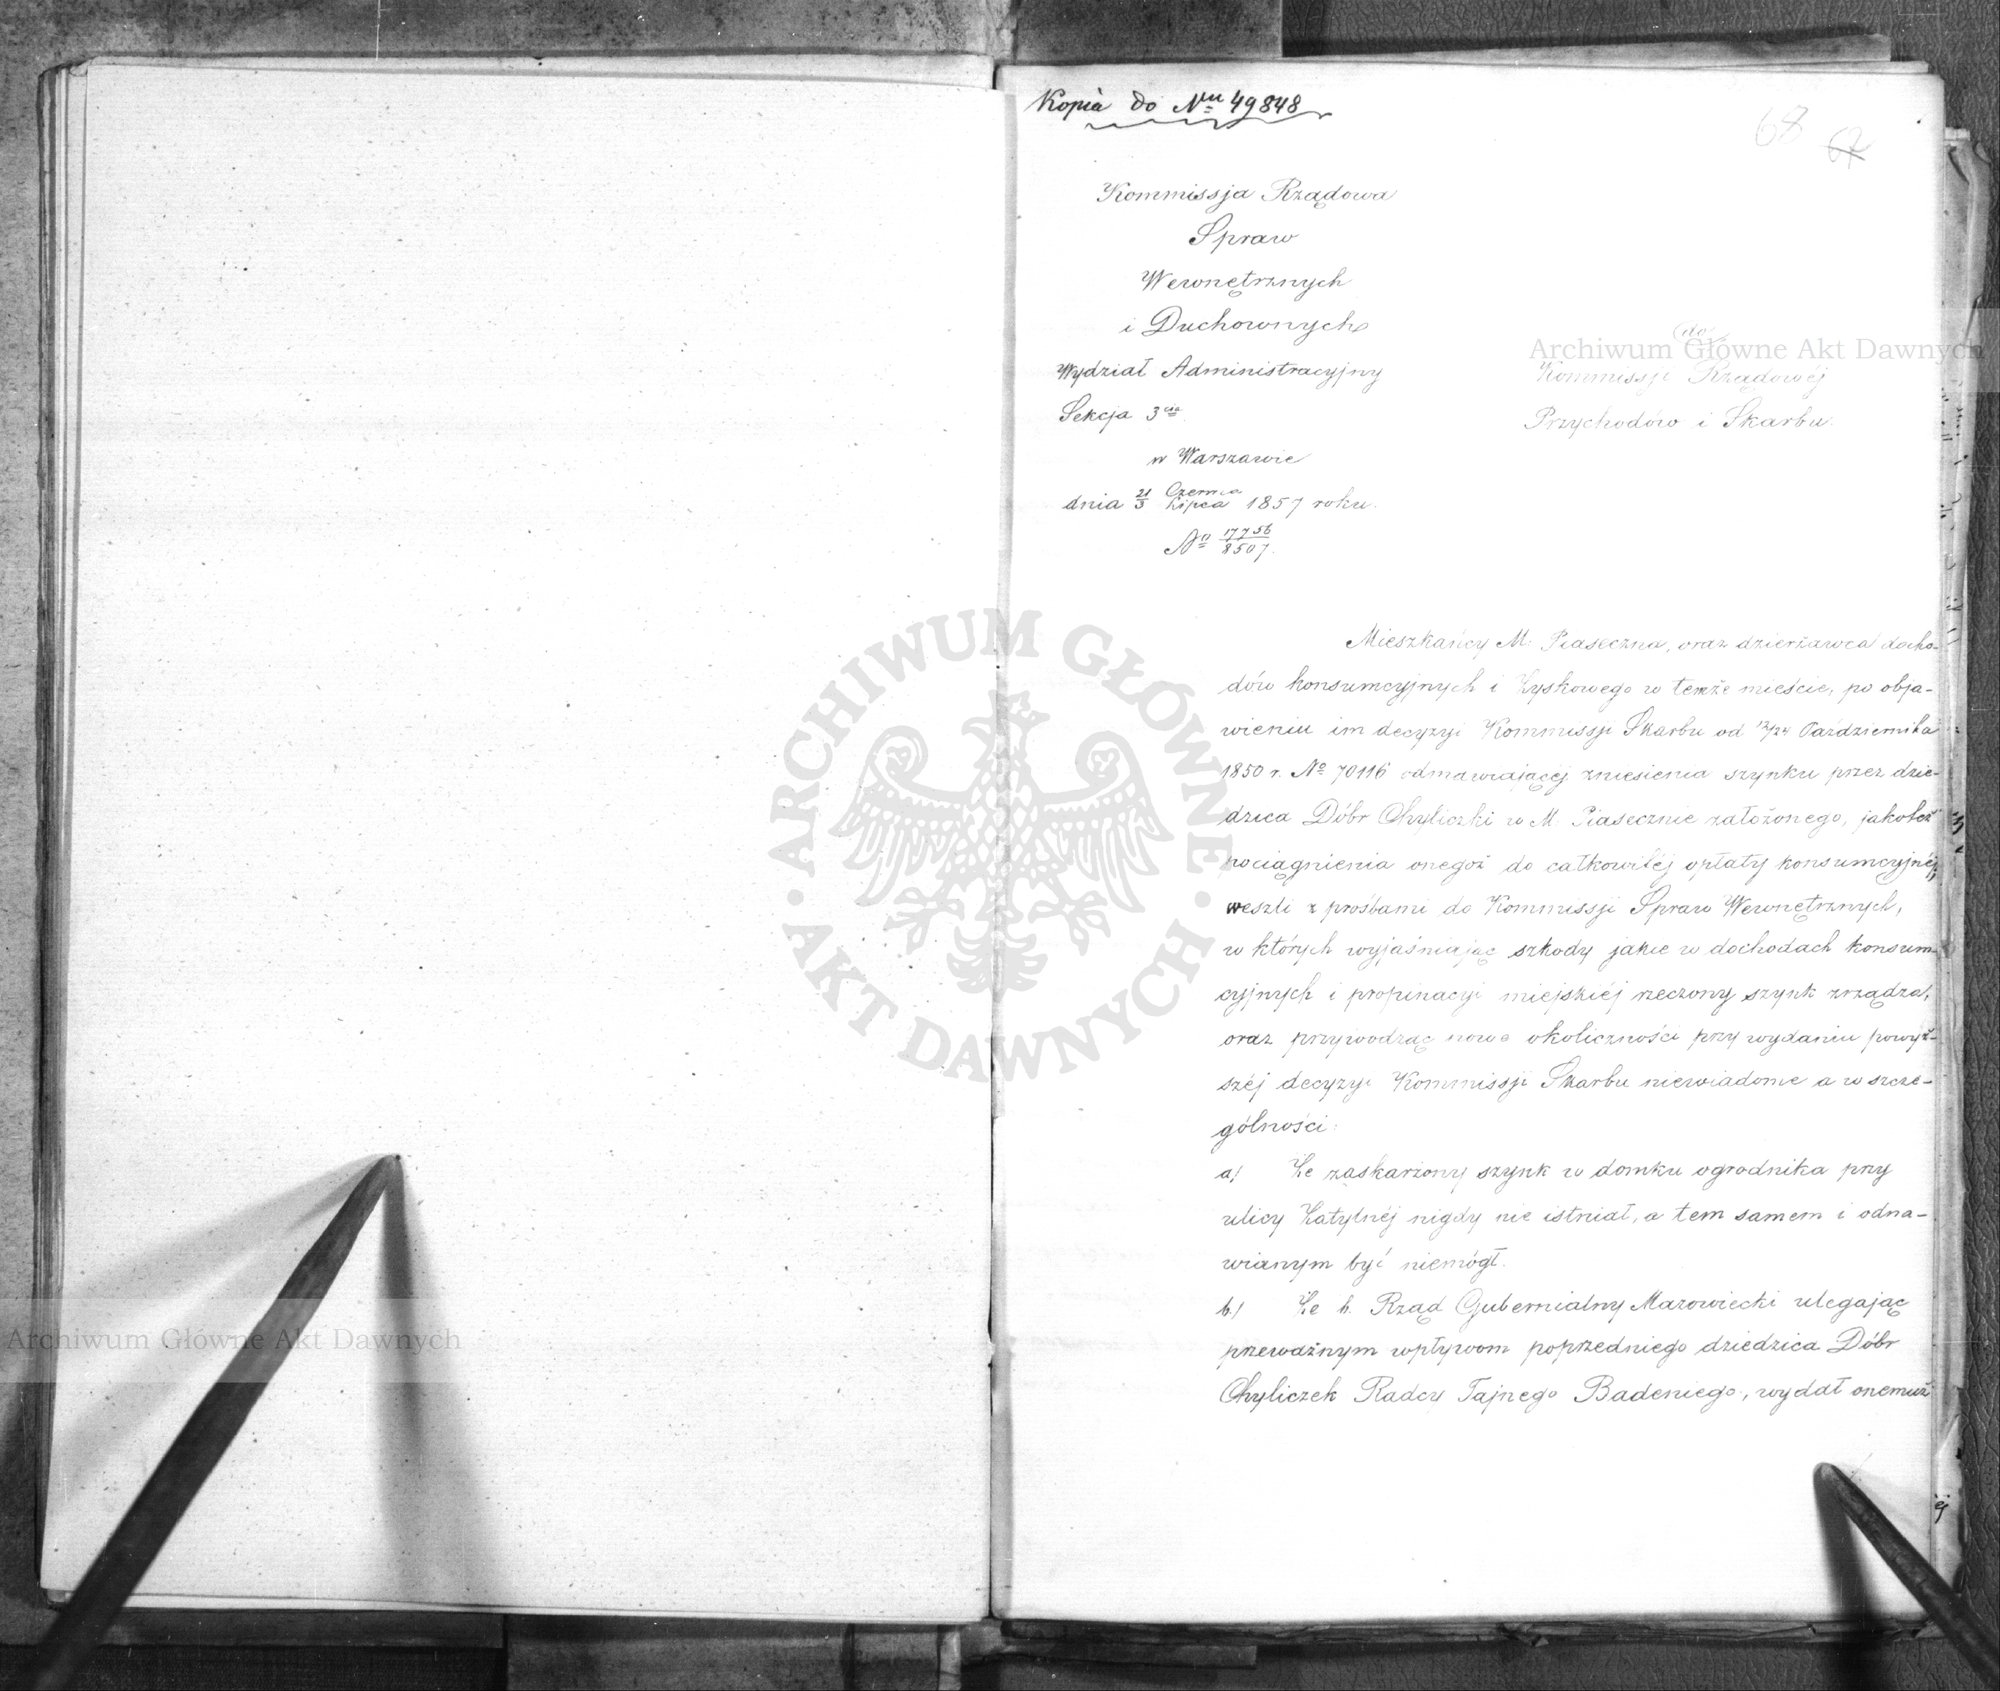 Kopia do Nru 49848
68 67
Kommissja Rządowa
Spraw
Wewnętrznych
i Duchownych
Wydział Administracyjny
Sekcja 3cia
w Warszawie
dnia 21/3 Czerwca/Lipca 1857 roku.
No 17756/8507.
do
Kommissji Rządowéj
Przychodów i Skarbu.
Mieszkańcy M. Piaseczna, oraz dzierżawca docho-
dów konsumcyjnych i Zyskowego w temże mieście, po obja-
wieniu im decyzyi Kommissji Skarbu od 12/24 Października
1850 r. No 70116 odmawiającéj zniesienia szynku przez dzie-
dzica Dóbr Chyliczki w M. Piasecznie założonego, jakoteż
pociągnienia onegoż do całkowitéj opłaty konsumcyjnéj,
weszli z prośbami do Kommissji Spraw Wewnętrznych,
w których wyjaśniając szkody jakie w dochodach konsum-
cyjnych i propinacyi miejskiéj rzeczony szynk zrządza,
oraz przywodząc nowe okoliczności przy wydaniu powyż-
széj decyzyi Kommissji Skarbu niewiadome a w szcze-
gólności:
a/ Że zaskarżony szynk w domku ogrodnika przy
ulicy Zatylnéj nigdy nie istniał, a tem samem i odna-
wianym być niemógł.
b/ Że b. Rząd Gubernialny Mazowiecki ulegając
przeważnym wpływom poprzedniego dziedzica Dóbr
Chyliczek Radcy Tajnego Badeniego, wydał onemuż
Archiwum Główne Akt Dawnych
ARCHIWUM GŁÓWNE
AKT DAWNYCH
Archiwum Główne Akt Dawnych